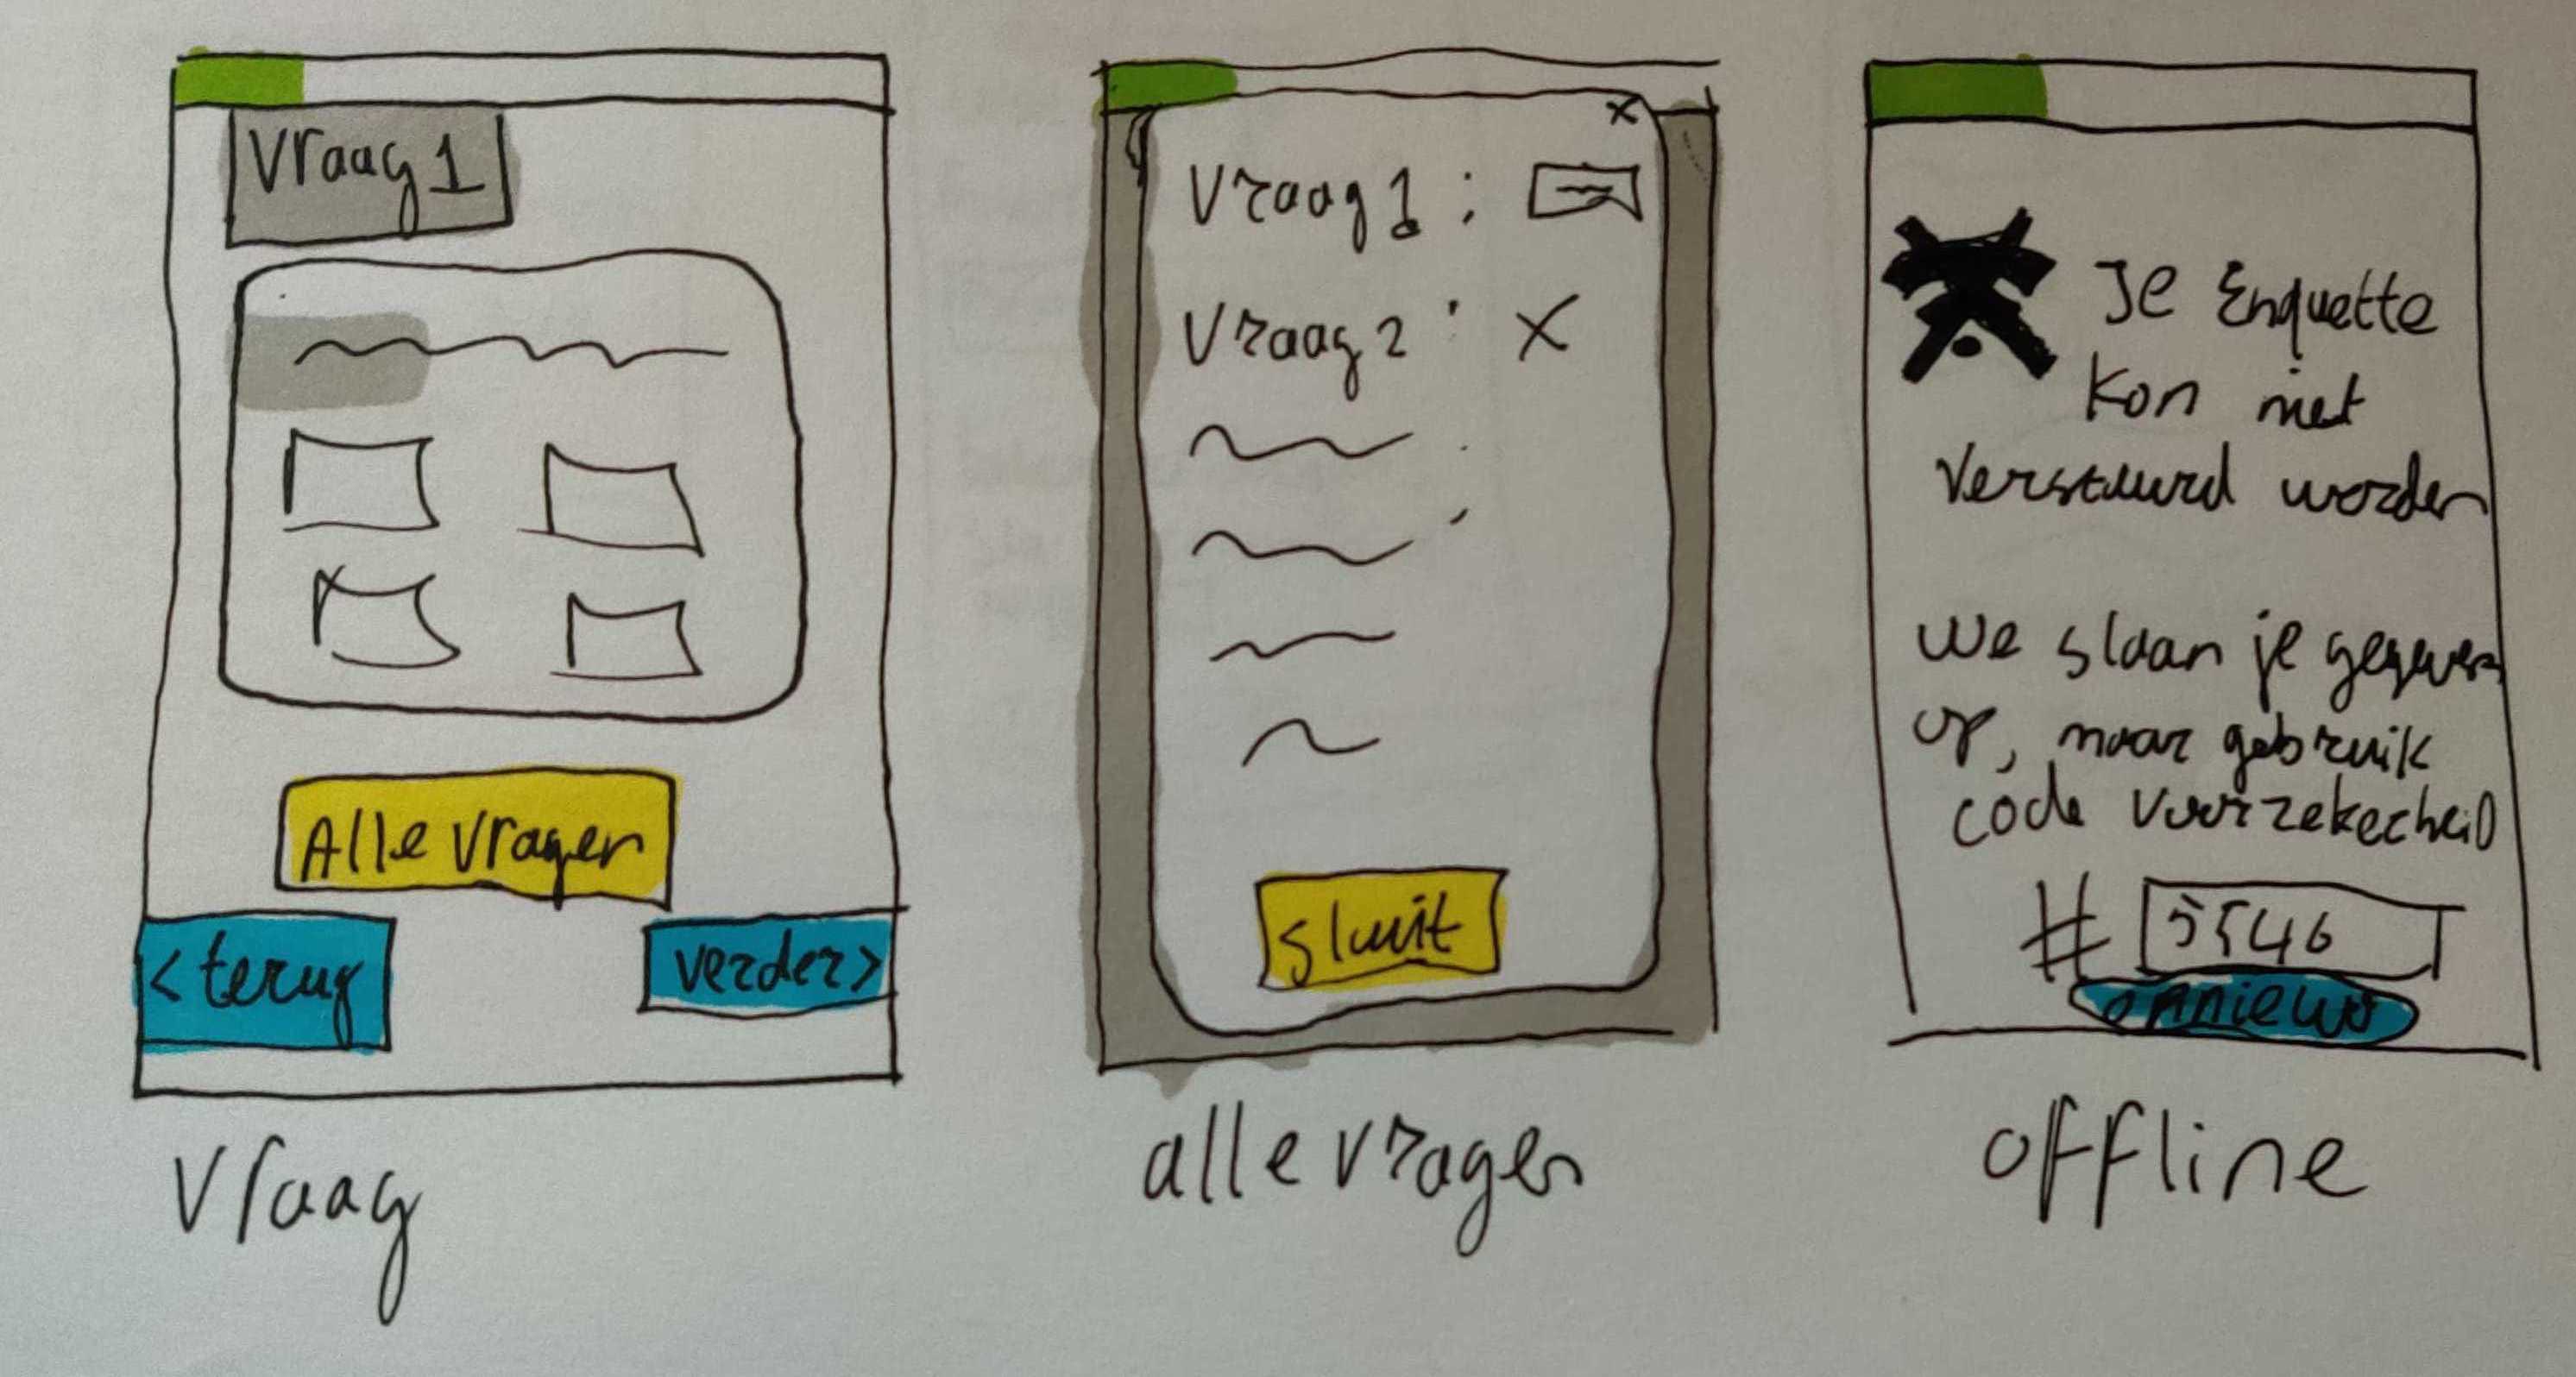 Vraag 1
Alle vragen
< terug
verder >
Vraag
x
Vraag 1 :
Vraag 2 : X
sluit
alle vragen
Je Enquette
kon niet
verstuurd worden
we slaan je gegevens
op, maar gebruik
code voor zekerheid
# 5546
opnieuw
offline